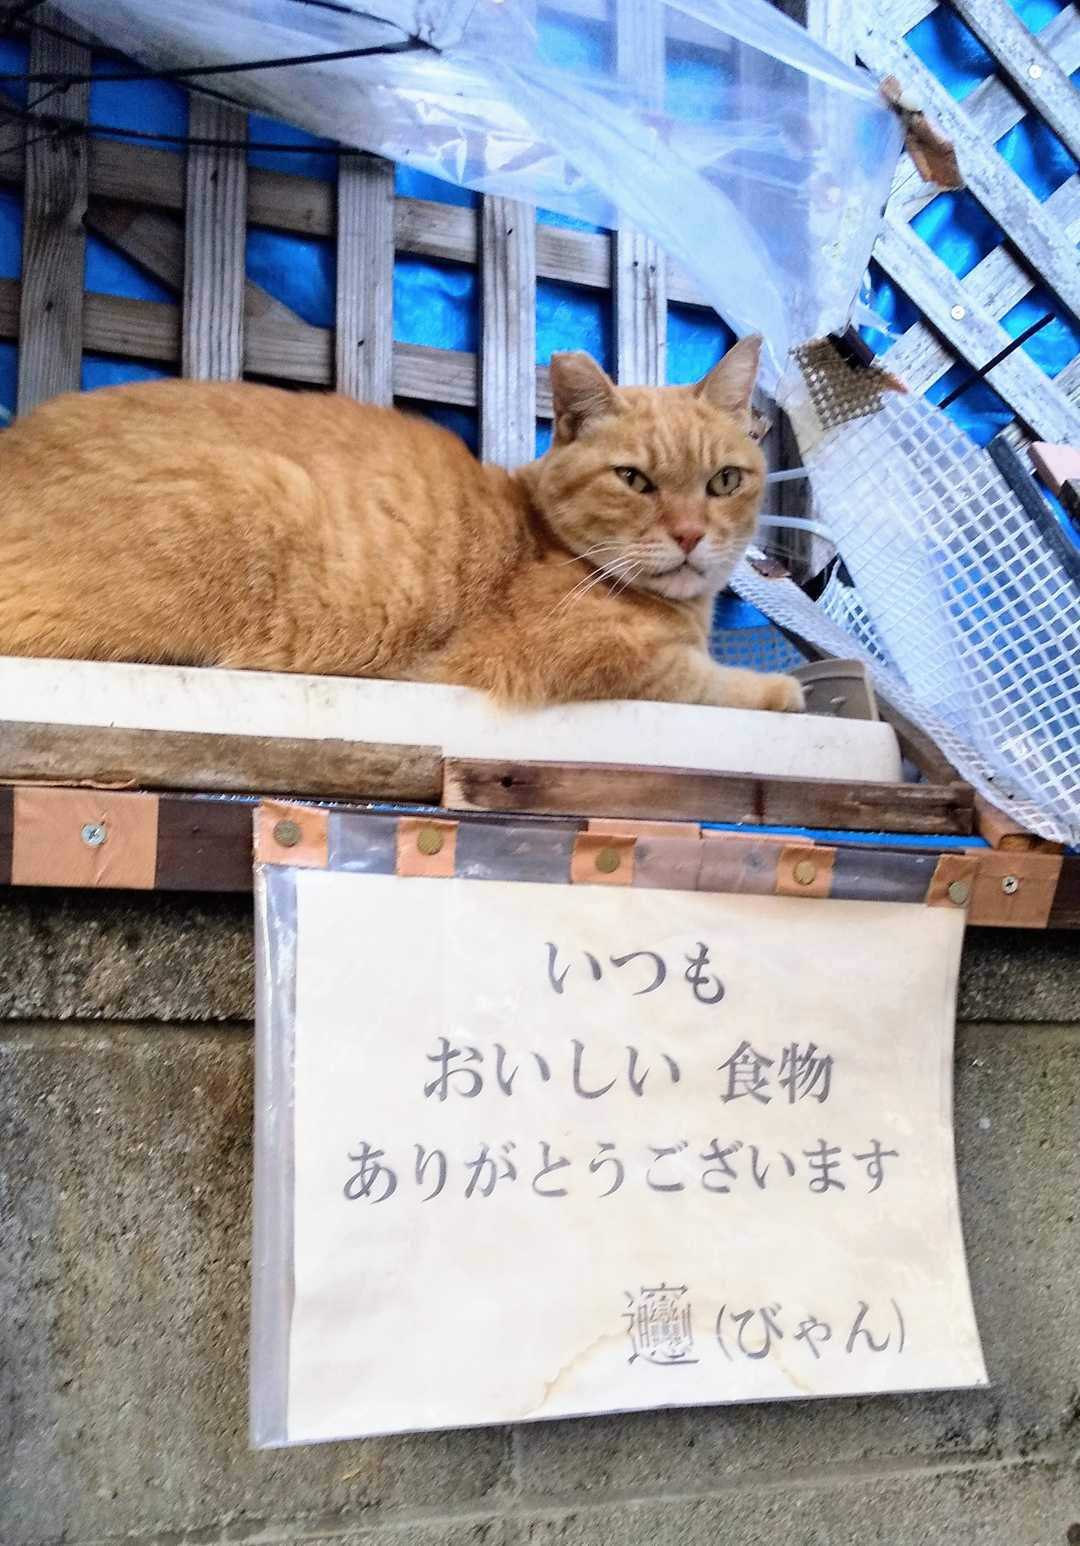 いつも
おいしい 食物
ありがとうございます
𰻞(びゃん)